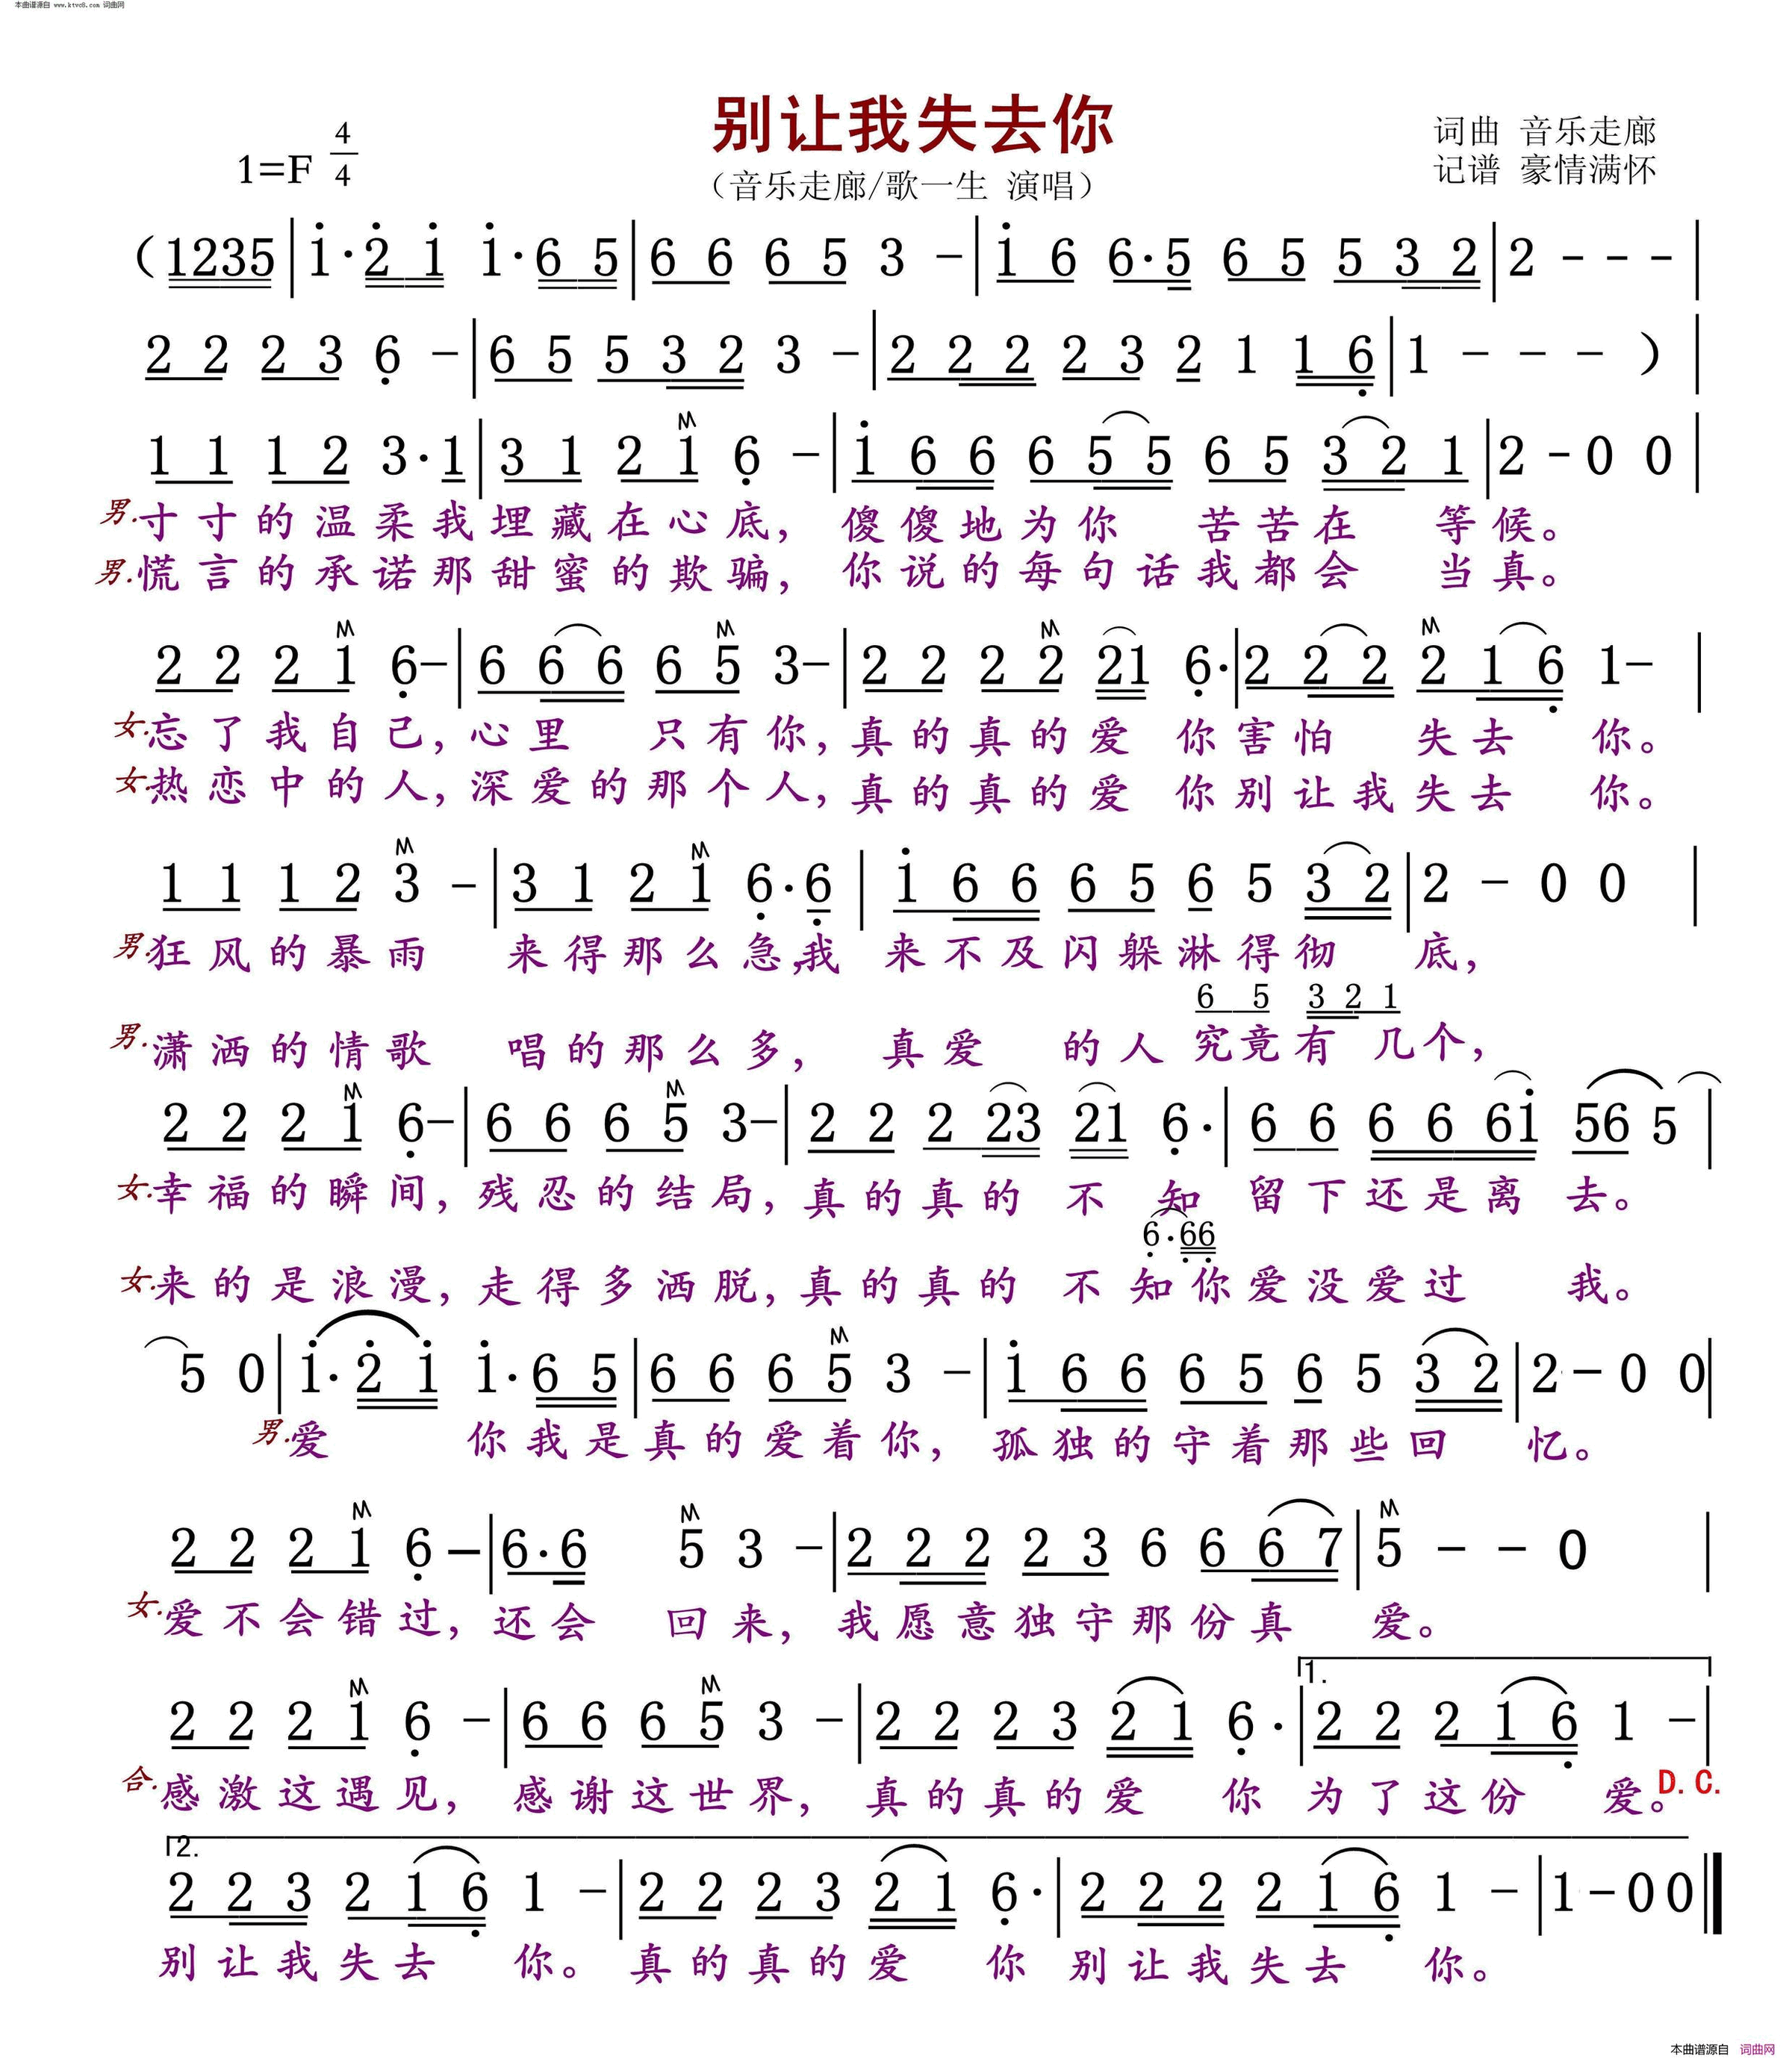 本曲谱源自 www.ktvc8.com 词曲网
别让我失去你
1=F 4/4
(音乐走廊/歌一生 演唱)
词曲 音乐走廊
记谱 豪情满怀
(1235|i·2 i i·6 5|6 6 6 5 3 -|i 6 6·5 6 5 5 3 2|2 - - -|
2 2 2 3 6 -|6 5 5 3 2 3 -|2 2 2 2 3 2 1 1 6|1 - - - )|
1 1 1 2 3·1|3 1 2 1 6 -|i 6 6 6 5 5 6 5 3 2 1|2 - 0 0|
男.寸寸的温柔我埋藏在心底，傻傻地为你 苦苦在 等候。
男.慌言的承诺那甜蜜的欺骗，你说的每句话我都会 当真。
2 2 2 1 6-|6 6 6 6 5 3-|2 2 2 2 21 6·|2 2 2 2 1 6 1-|
女.忘了我自己，心里 只有你，真的真的爱 你害怕 失去 你。
女.热恋中的人，深爱的那个人，真的真的爱 你别让我失去 你。
1 1 1 2 3 -|3 1 2 1 6·6|i 6 6 6 5 6 5 3 2|2 - 0 0|
男.狂风的暴雨 来得那么急，我 来不及闪躲淋得彻 底，
6 5 3 2 1
男.潇洒的情歌 唱的那么多， 真爱 的人究竟有 几个，
2 2 2 1 6-|6 6 6 5 3-|2 2 2 23 21 6·|6 6 6 6 6i 56 5|
女.幸福的瞬间，残忍的结局，真的真的 不 知 留下还是离 去。
6·66
女.来的是浪漫，走得多洒脱，真的真的 不 知你爱没爱过 我。
5 0|i·2 i i·6 5|6 6 6 5 3 -|i 6 6 6 5 6 5 3 2|2 - 0 0|
男.爱 你我是真的爱着你， 孤独的守着那些回 忆。
2 2 2 1 6 -|6·6 5 3 -|2 2 2 2 3 6 6 6 7|5 - - 0|
女.爱不会错过，还会 回来，我愿意独守那份真 爱。
1.
2 2 2 1 6 -|6 6 6 5 3 -|2 2 2 3 2 1 6·|2 2 2 1 6 1 -|
合.感激这遇见， 感谢这世界， 真的真的爱 你 为了这份 爱。D.C.
2.
2 2 3 2 1 6 1 -|2 2 2 3 2 1 6·|2 2 2 2 1 6 1 -|1 - 0 0‖
别让我失去 你。真的真的爱 你 别让我失去 你。
本曲谱源自 词曲网